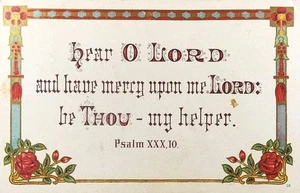 Hear O LORD
and have mercy upon me LORD:
be THOU - my helper.
Psalm XXX, 10.